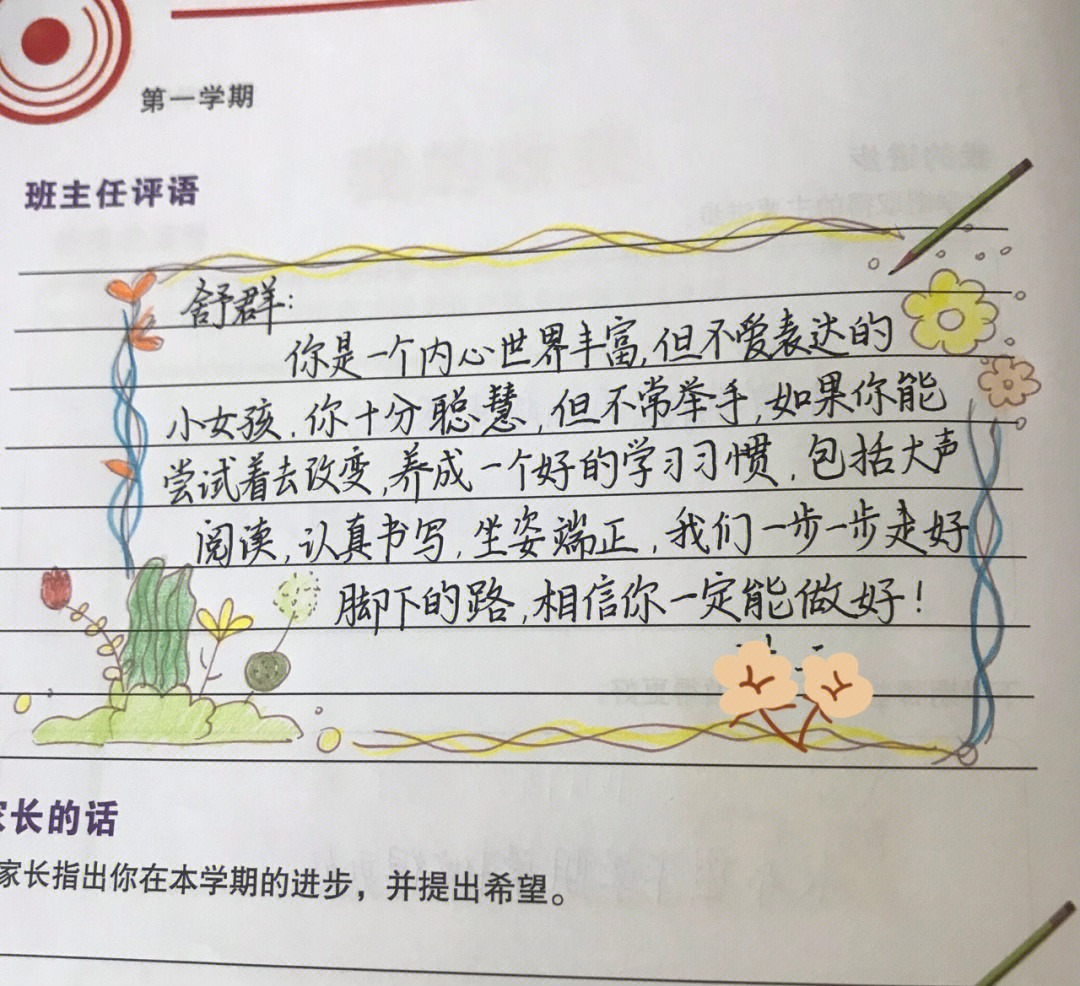 第一学期
班主任评语
舒群：
你是一个内心世界丰富，但不爱表达的
小女孩，你十分聪慧，但不常举手，如果你能
尝试着去改变，养成一个好的学习习惯，包括大声
阅读，认真书写，坐姿端正，我们一步一步走好
脚下的路，相信你一定能做好！
家长的话
家长指出你在本学期的进步，并提出希望。